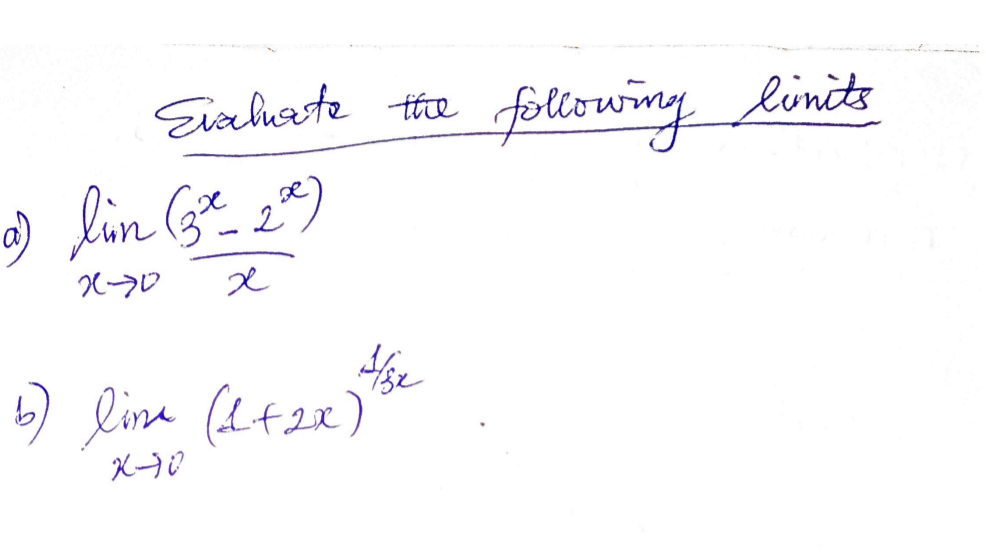 Evaluate the following limits
a) lim x→0 (3^x - 2^x) / x
b) lim x→0 (1+2x)^1/3x .